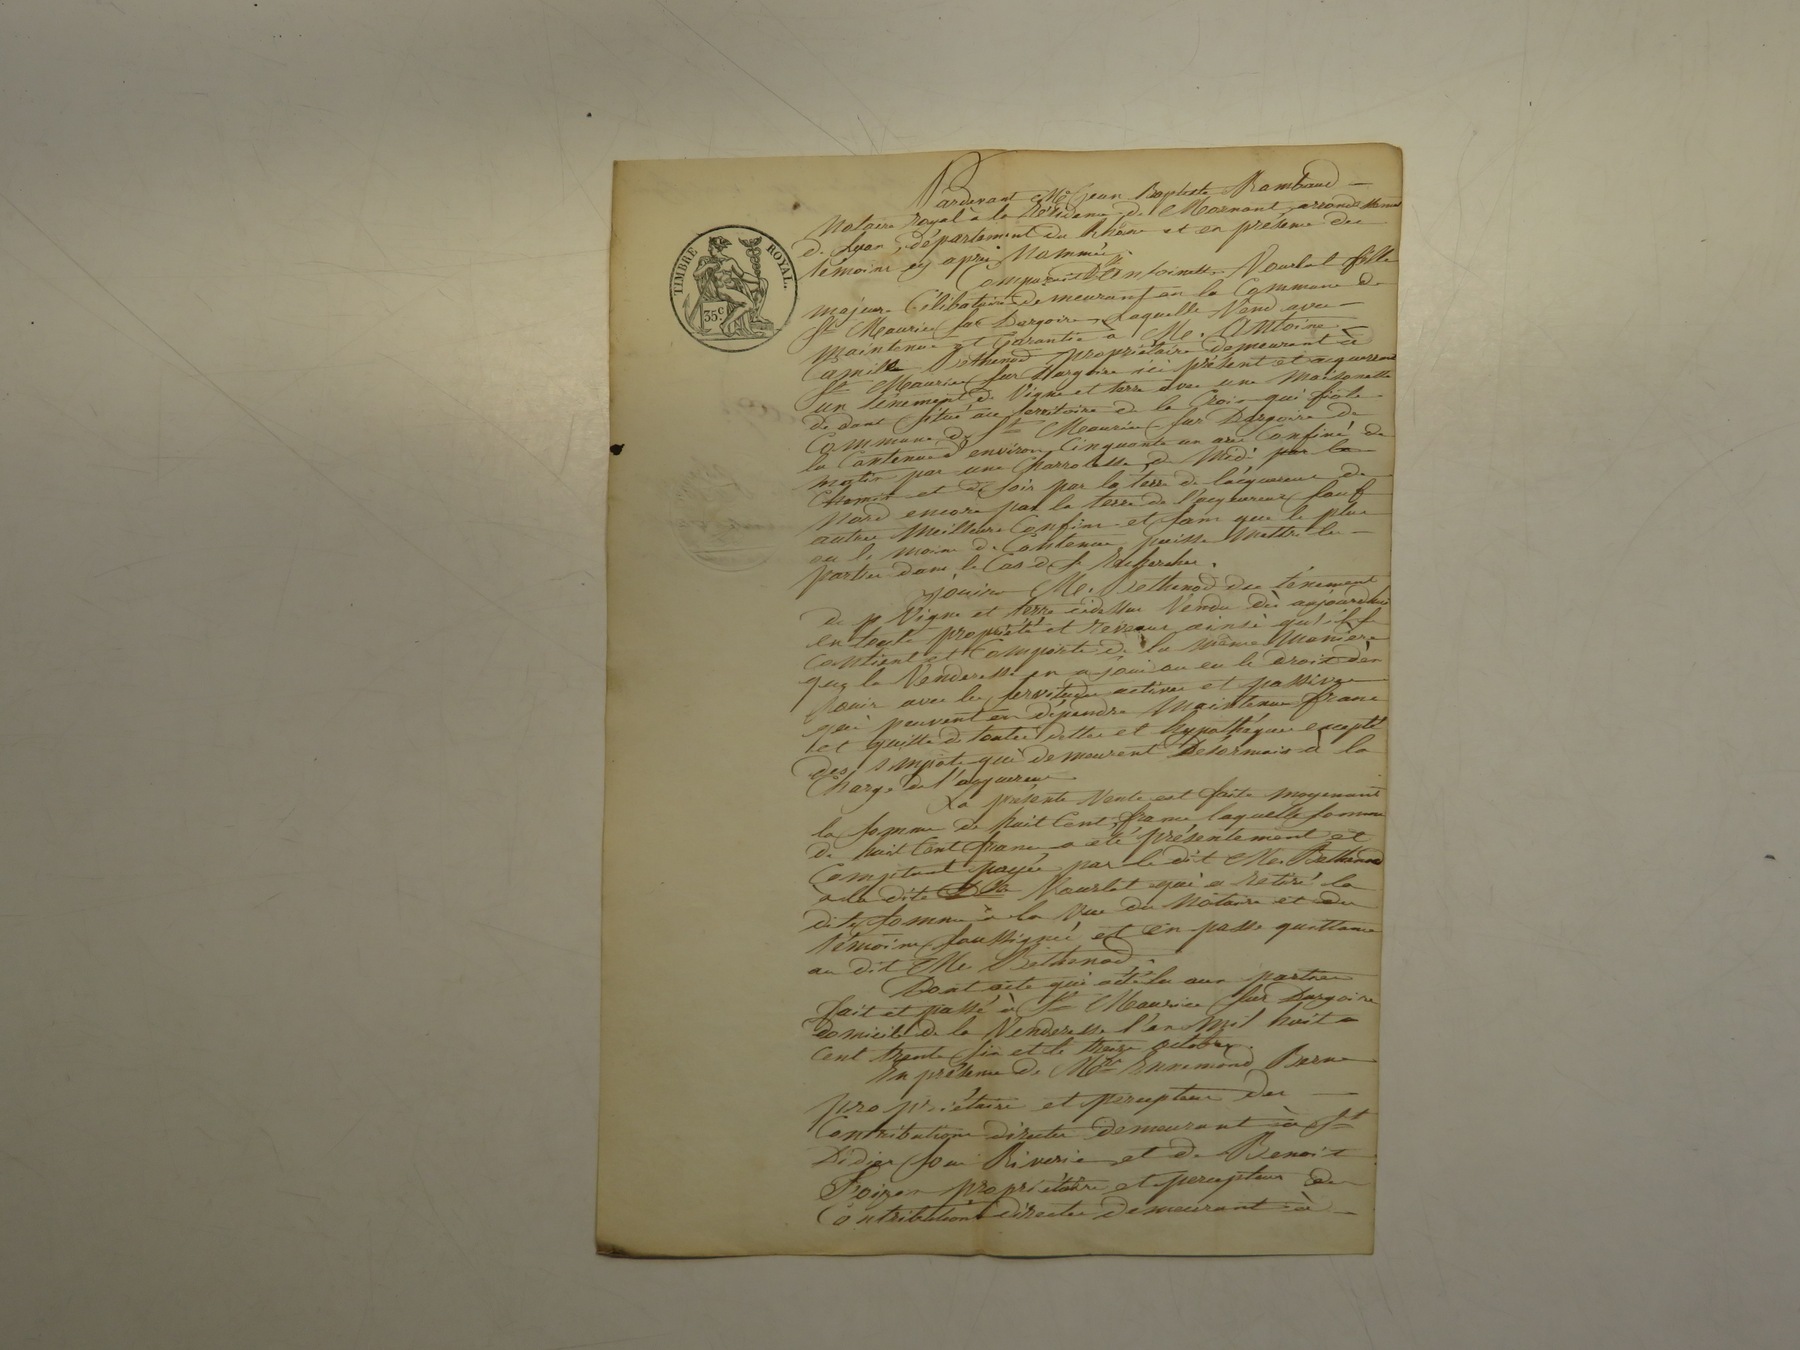 TIMBRE ROYAL.
35c
Pardevant Me Jean Baptiste Rambaud
Notaire Royal à la Résidence de Mornant, arrondissement
de Lyon, département du Rhône et en présence des
témoins cy après Nommés
Comparait Dlle Antoinette Vourlat fille
majeure Célibataire demeurant en la Commune de
St Maurice sur Dargoire, laquelle Vend avec
Maintenue et Garantie à Mr. Antoine
Camille Bethenod propriétaire demeurant à
St Maurice sur Dargoire ici présent et acquereur
un ténement de Vigne et terre avec une Maisonette
de dant situé au territoire de la Croix qui fiole
Commune de St Maurice sur Dargoire de
la Contenue d'environ Cinquante un ares Confiné de
matin par une Charrolesse, de Midi par le
Chemin et de soir par la terre de l'acquereur de
Nord encore par la terre de l'acquereur sauf
autres Meilleurs Confins et sans que le plus
ou le moins de Contenue puisse Mettre les
parties dans le Cas de se Rechercher.
Jouira Mr. Bethenod du ténement
de p Vigne et terre cidessus Vendu dès aujourdhui
en toute propriété et revenus ainsi qu'il se
Contient et Comporte de la même Manière
que la Venderesse en a joui ou eu le droit d'en
Jouir avec les servitudes actives et passives
qui peuvent en dépendre Maintenu franc
et quitte de toutes dettes et hypothèques excepté
des impots qui demeurent Desormais à la
Charge de l'acquereur
La présente Vente est faite moyenant
la somme de huit Cent francs laquelle somme
de huit Cent francs a été présentement et
Comptant payée par le dit Mr. Bethenod
à la dite Dlle Vourlat qui a retiré la
dite somme à la Vue du Notaire et des
témoins soussignés et en passe quittance
au dit Mr Bethenod.
Dont acte qui a été lu aux parties
fait et passé à St Maurice sur Dargoire
domicile de la Venderesse l'an Mil huit
Cent trente six et le treize octobre.
En présence de Mrs Ennemond Berne
propriétaire et percepteur des
Contributions directes demeurant à St
Didier sous Riverie et de Benoit
propriétaire et percepteur des
Contributions directes demeurant à